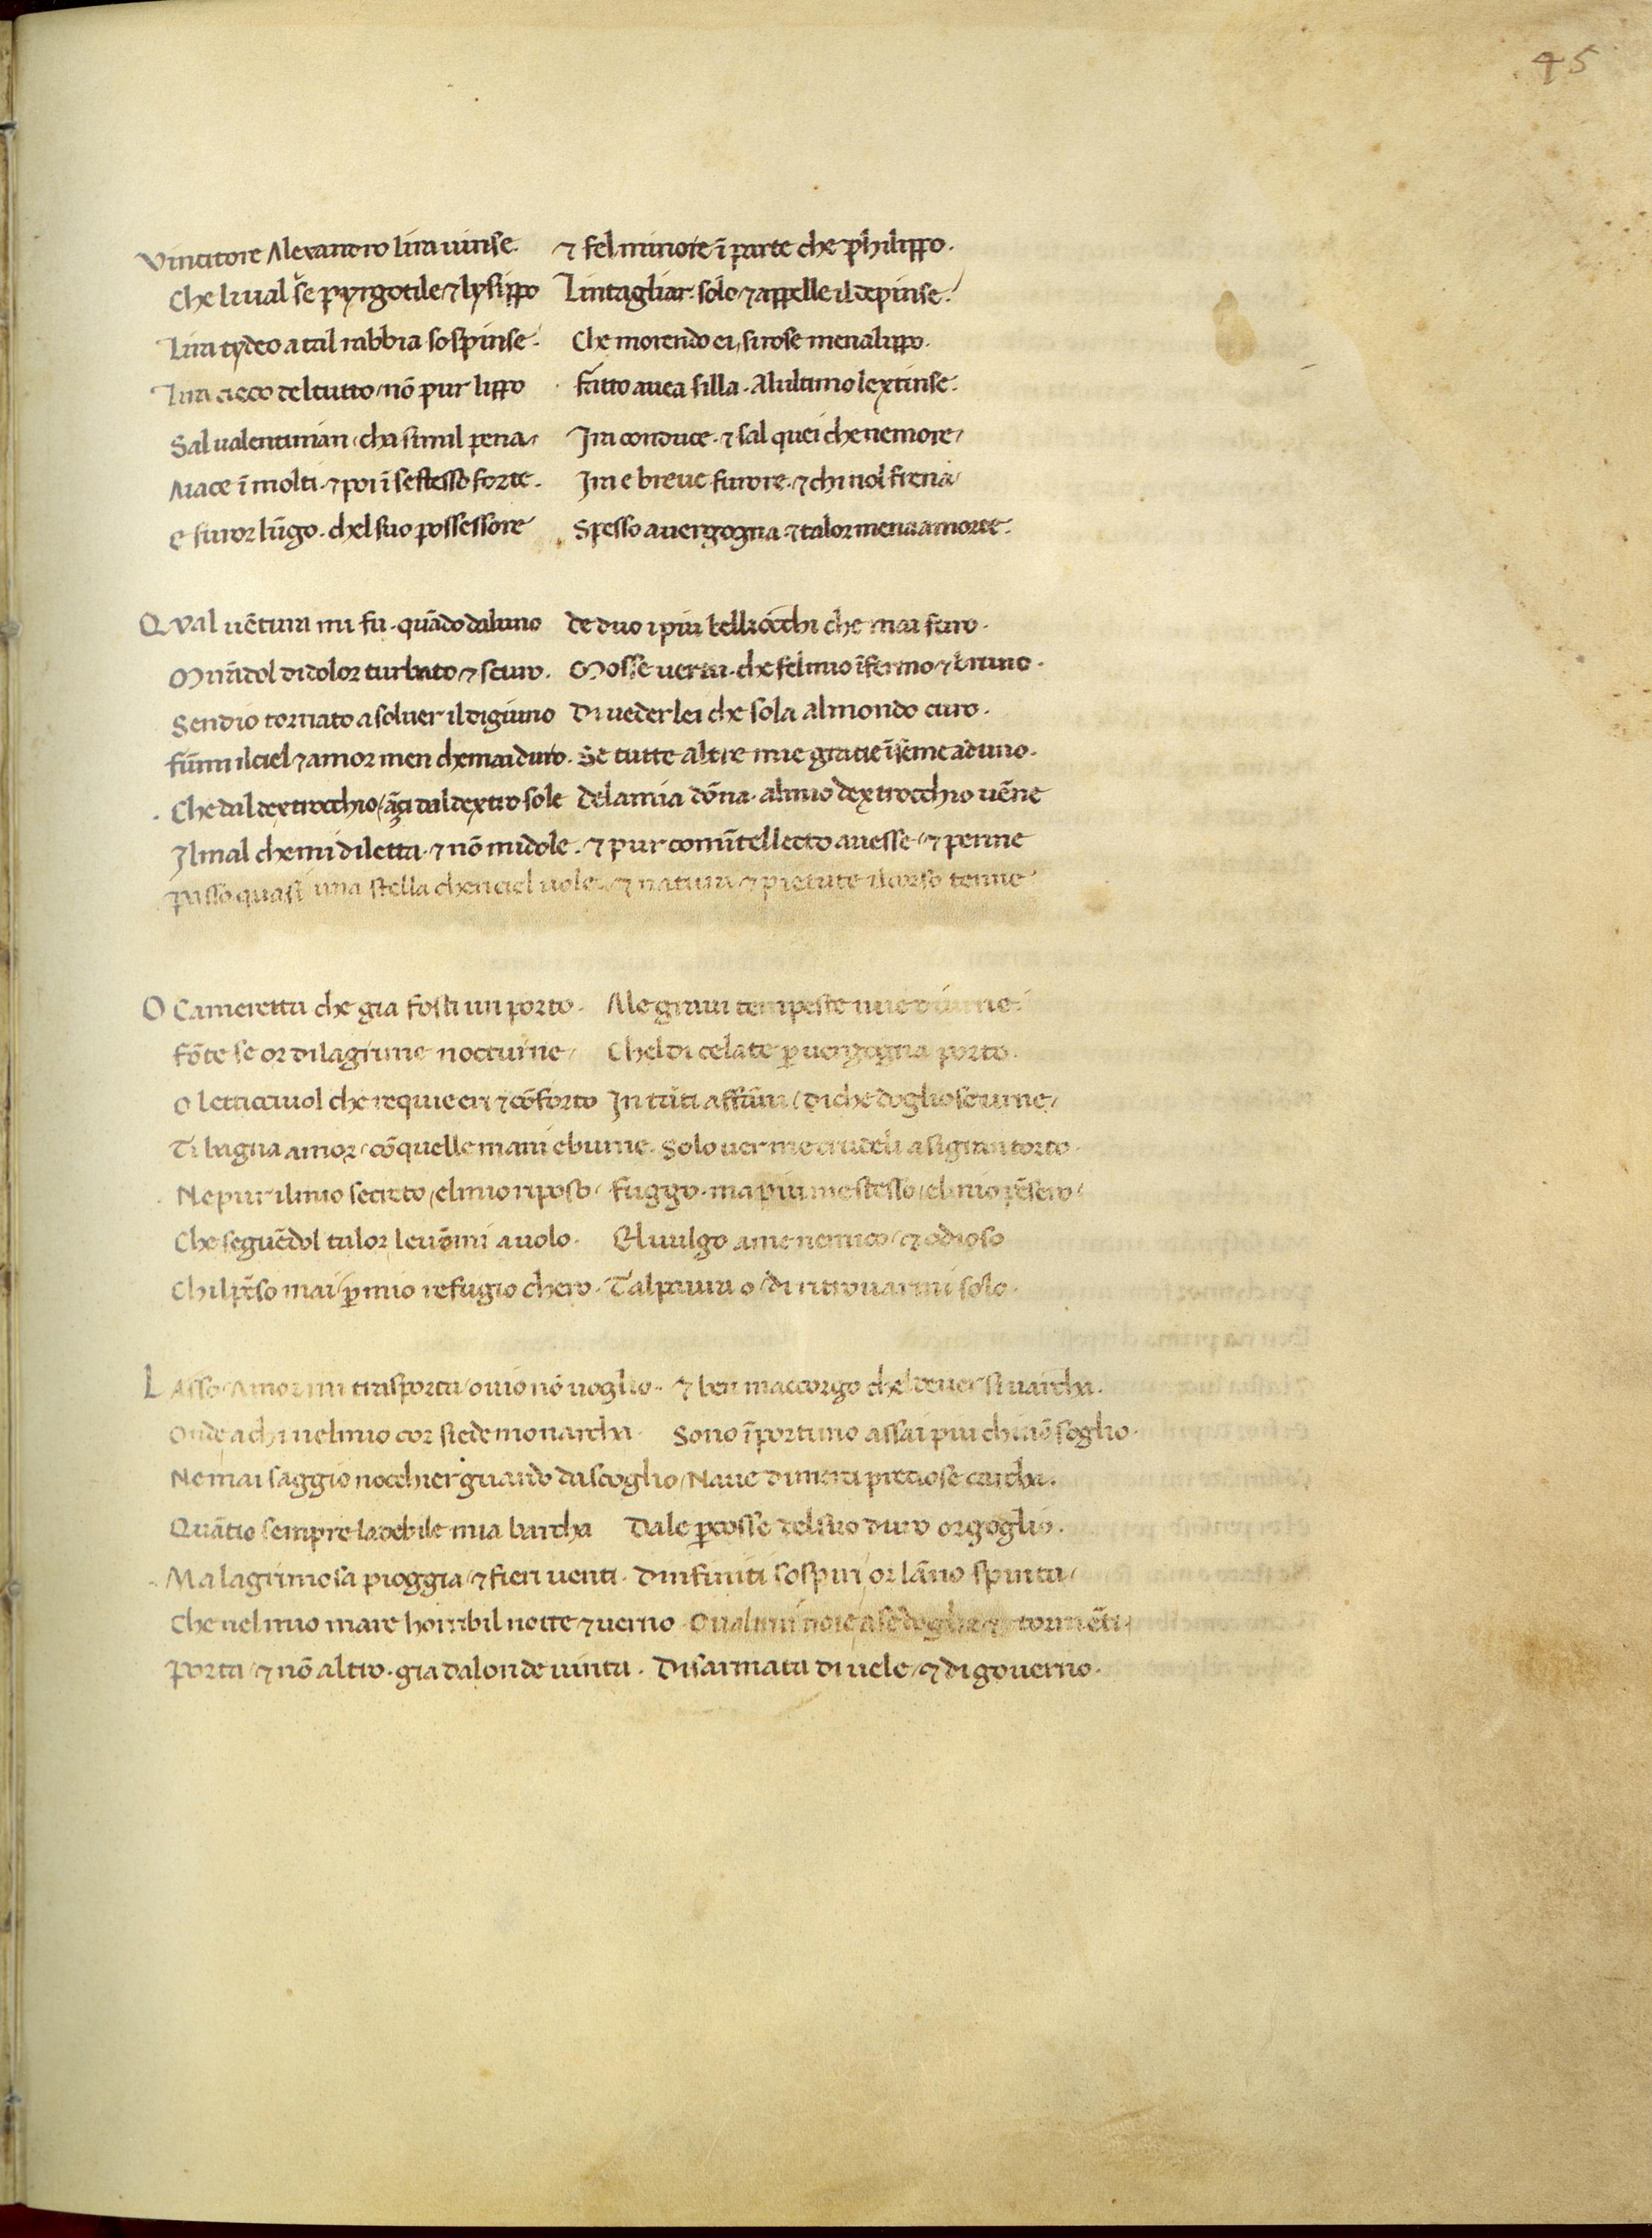 45
Vincitore Alexandro lira uinse. & fel minore ĩ parte che philippo.
Che li ual se pyrgotile & lysippo Lintagliar solo & appelle il depinse.
Lira tydeo a tal rabbia sospinse. Che morendo ei si rose menalippo.
Lira cieco del tutto nõ pur lippo fatto auea silla. Alultimo lextinse.
Sal ualentinian cha simil pena Ira conduce. & sal quei che ne more
Aiace ĩ molti. & poi ĩ se stesso forte. Ira e breue furore. & chi nol frena
e furor lũgo. chel suo possessore Spesso a uergogna. & talor mena a morte.
QVal uẽtura mi fu. quãdo daluno de duo i piu belli occhi che mai furo.
Mirãdol di dolor turbato & scuro. Mosse uertu. che fel mio ĩfermo & bruno.
Sendio tornato a soluer il digiuno Di ueder lei che sola al mondo curo.
fũmi il ciel & amor men che mai duro. Se tutte altre mie gratie ĩsẽme aduno.
Che dal dextrocchio ãçi dal dextro sole dela mia dõna. al mio dextrocchio uẽne
Il mal che mi diletta. & nõ mi dole. & pur comĩtellecto auesse & penne
Passo quasi una stella chen ciel uole. & natura & pietate il corso tenne
O Cameretta che gia fosti un porto. Ale graui tempeste mie diurne.
fõte se or di lagrime nocturne Chel di celate ꝑ uergogna porto.
O letticciuol che requie eri & cõforto In tãti affãni di che dogliose urne
Ti bagna amor cõ quelle mani eburne. Solo uer me crudeli a si gran torto.
Ne pur il mio secreto el mio riposo fuggo. ma piu me stesso el mio pẽsero
Che seguẽdol talor leuõmi a uolo. El uulgo a me nemico & odioso
Chil pẽso mai ꝑ mio refugio chero. Tal paura o di ritrouarmi solo.
LAsso Amor mi trasporta ouio nõ uoglio. & ben maccorgo chel deuer si uarcha.
Onde a chi nel mio cor siede monarcha. Sono ĩportuno assai piu chi nõ soglio.
Ne mai saggio nocchier guardo da scoglio Naue di merci pretiose carcha.
Quãtio sempre la debile mia barcha Dale ꝑcosse del suo duro orgoglio.
Ma lagrimosa pioggia & fieri uenti. Dinfiniti sospiri or lãno spinta
Che nel mio mare horribil notte & uerno. Oualtrui noie a se doglie & tormẽti
Porta & nõ altro. gia dalonde uinta. Disarmata di uele & di gouerno.